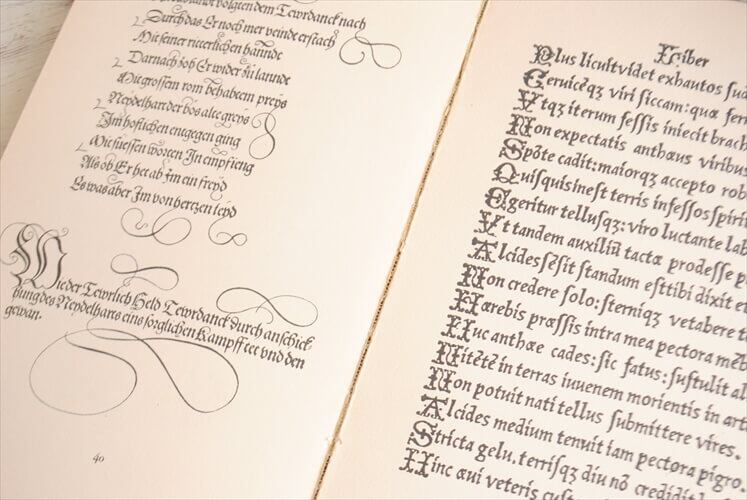 volgten dem Tewrdanck nach
Durch das Er noch mer veindt erstach
Mit seiner ritterlichen hanndt
Darnach zoh Er wider zů lanndt
Mit grossem rom behabtem preys
Neydelhart der bös alte greys
Im höflichen entgegen ging
Mit suessen worten In empfieng
Als ob Er het ab Im ein freyd
Es was aber Im von hertzen leyd
Wie der Tewrlich Held Tewrdanck durch anschick-
kung des Neydelharts eins sorglichen Kampff
gewan.
40
Liber
Plus licuit videt exhautos
Ceruicēqʒ viri siccam: quæ
Vtqʒ iterum fessis iniecit
Non expectatis anthæus viribus
Spōte cadit: maiorqʒ accepto
Quisquis inest terris infessos
Egeritur tellusqʒ: viro luctante
Vt tandem auxiliū tactæ prodesse
Alcides sēsit standum est tibi dixit
Non credere solo: sterniqʒ vetabere
Hærebis præssis intra mea pectora
Huc anthæe cades: sic fatus: sustulit
Nitētē in terras iuuenem morientis in
Non potuit nati tellus submittere vires.
Alcides medium tenuit iam pectora pigro.
Stricta gelu, terrisqʒ diu nō
Hinc æui veteris